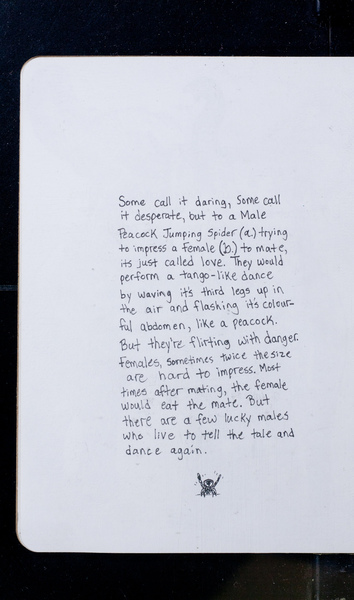 Some call it daring, Some call
it desperate, but to a Male
Peacock Jumping Spider (a.) trying
to impress a female (b.) to mate,
its just called love. They would
perform a tango-like dance
by waving it's third legs up in
the air and flashing it's colour-
ful abdomen, like a peacock.
But they're flirting with danger.
Females, sometimes twice the size
are hard to impress. Most
times after mating, the female
would eat the mate. But
there are a few lucky males
who live to tell the tale and
dance again.